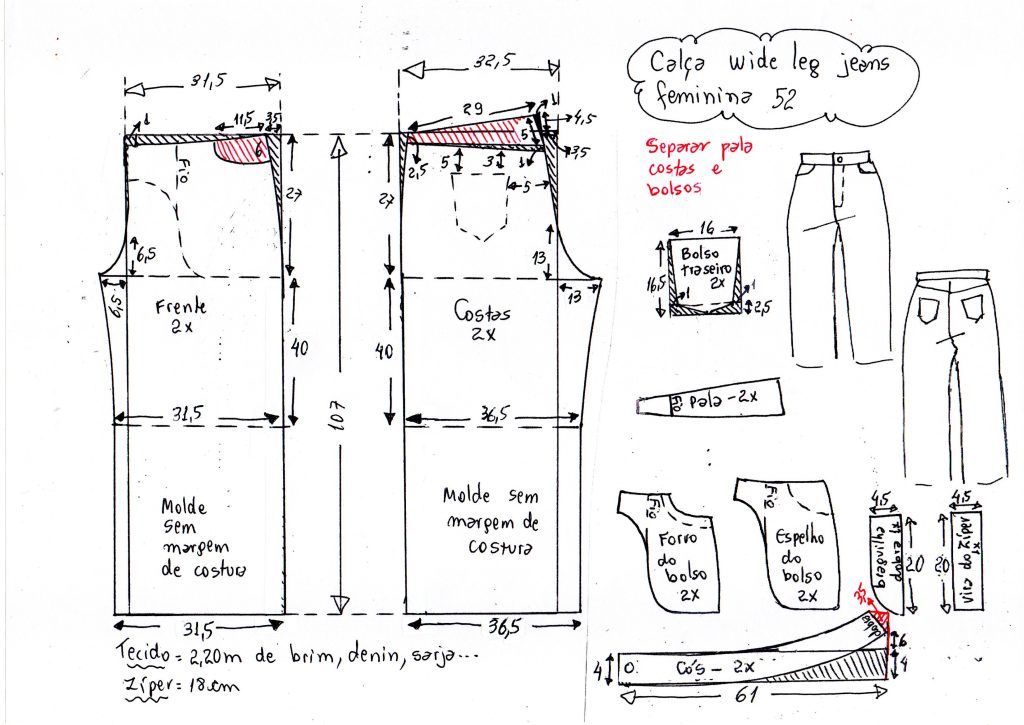 Calça wide leg jeans
feminina 52
Separar pala
costas e
bolsos
31,5
11,5
3,5
1
6
Fio
27
6,5
6,5
Frente
2x
40
31,5
Molde
sem
margem
de costura
31,5
107
32,5
29
1
4,5
5
3,5
2,5
5
3
1
5
27
13
13
Costas
2x
40
36,5
Molde sem
margem de
costura
36,5
16
Bolso
traseiro
2x
16,5
1
1
2,5
Fio
pala - 2x
Fio
Forro
do
bolso
2x
Fio
Espelho
do
bolso
2x
4,5
20
4,5
20
vira do zíper
1x
dobra
6
4
4
Cós - 2x
61
Tecido = 2,20m de brim, denin, sarja...
Zíper = 18cm